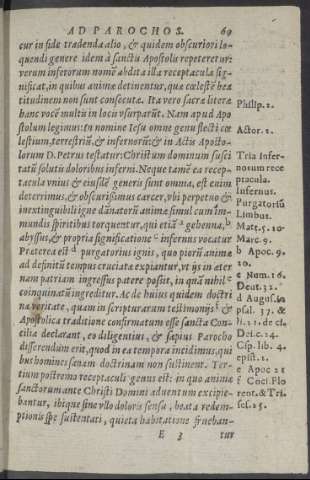 AD PAROCHOS. 69
cur in fide tradenda alio, & quidem obscuriori lo-
quendi genere idem à sanctis Apostolis repeteretur:
verum inferorum nomē abdita illa receptacula sig-
nificat, in quibus animæ detinentur, quæ cœlestē bea
titudinem non sunt consecutæ. Ita vero sacræ literæ
hanc vocē multis in locis vsurparūt. Nam apud Apo
stolum legimus: In nomine Iesu omne genu flecti cœ
lestium, terrestriū, & infernorū: & in Actis Aposto-
lorum D. Petrus testatur: Christum dominum susci
tatū solutis doloribus inferni. Neque tamē ea recep-
tacula vnius & eiusdē generis sunt omnia, est enim
deterrimus, & obscurißimus carcer, vbi perpetuo &
inextinguibili igne dānatorū animæ simul cum im-
mundis spiritibus torquentur, qui etiā a gehenna, b
abyssus, & propria significatione c infernus vocatur
Præterea est d purgatorius ignis, quo piorū animæ
ad definitū tempus cruciatæ expiantur, vt ijs in æter
nam patriam ingressus patere possit, in quā nihil e
coinquinatū ingreditur. Ac de huius quidem doctri
næ veritate, quam in scripturarum testimonijs f &
Apostolica traditione confirmatam esse sancta Con-
cilia declarant, eo diligentius, & sæpius Parocho
disserendum erit, quod in ea tempora incidimus, qui
bus homines sanam doctrinam non sustinent. Ter-
tium postremo receptaculi genus est: in quo animæ
sanctorum ante Christi Domini aduentum excipie-
bantur, ibique sine vllo doloris sensu, beata redem-
ptionis spe sustentati, quieta habitatione fruēban-
E 3 tur
Philip. 2.
Actor. 2.
Tria Infer-
norum rece
ptacula.
Infernus.
Purgatoriū
Limbus.
Matt. 5. 10
Marc. 9.
b Apoc. 9.
20.
c Num. 16.
Deut. 32.
d Augus. in
psal. 37. &
li. 21. de ci.
Dei. c. 24.
Cip. lib. 4.
epist. 1.
e Apoc 21
f Coci. Flo
rent. & Tri.
ses. 25.